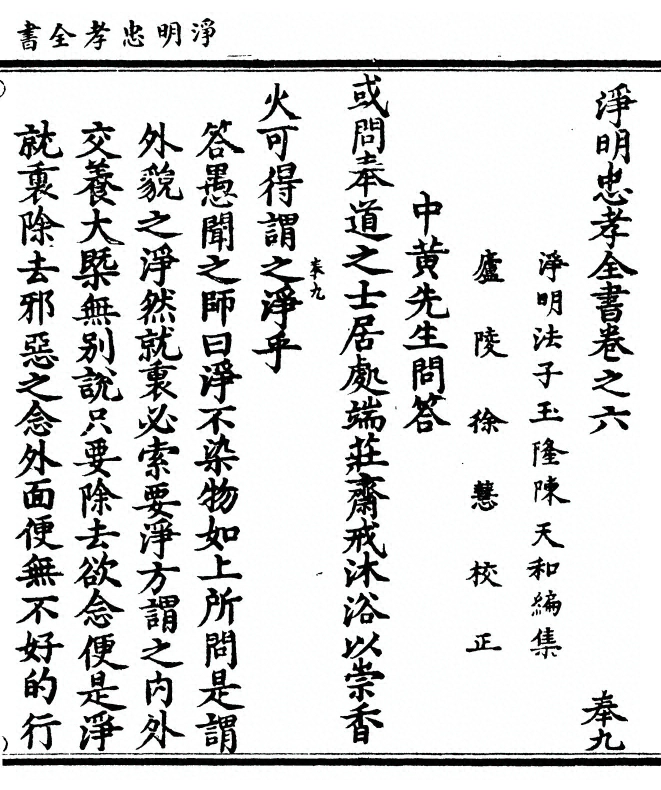 淨明忠孝全書
淨明忠孝全書卷之六
奉九
淨明法子玉隆陳天和編集
廬陵徐慧校正
中黃先生問答
或問奉道之士居處端莊齋戒沐浴以崇香
火可得謂之淨乎
奉九
答愚聞之師曰淨不染物如上所問是謂
外貌之淨然就裏必索要淨方謂之内外
交養大槩無别說只要除去欲念便是淨
就裏除去邪惡之念外面便無不好的行